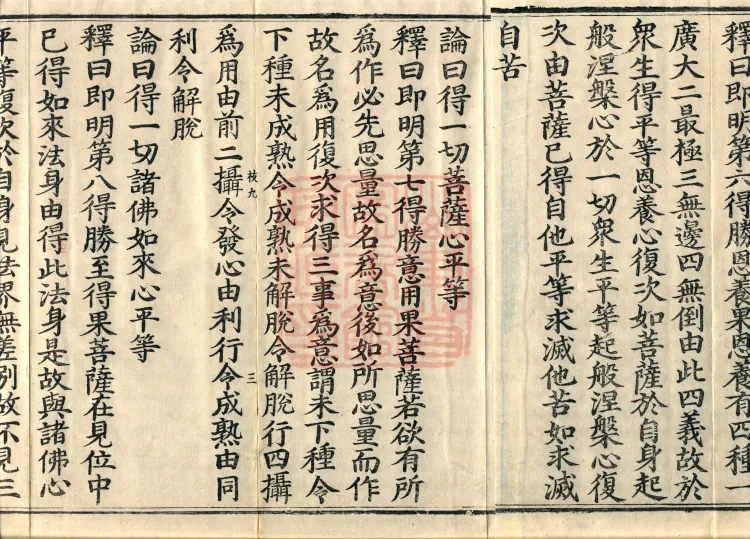 釋曰即明第六得勝恩養果恩養有四種一
廣大二最極三無邊四無倒由此四義故於
衆生得平等恩養心復次如菩薩於自身起
般涅槃心於一切衆生平等起般涅槃心復
次由菩薩已得自他平等求滅他苦如求滅
自苦
論曰得一切菩薩心平等
釋曰即明第七得勝意用果菩薩若欲有所
爲作必先思量故名爲意後如所思量而作
故名爲用復次求得三事爲意謂未下種令
下種未成熟令成熟未解脫令解脫行四攝
枝九
三
爲用由前二攝令發心由利行令成熟由同
利令解脫
論曰得一切諸佛如來心平等
釋曰即明第八得勝至得果菩薩在見位中
已得如來法身由得此法身是故與諸佛心
平等復次於自身見法界無差別故不見三